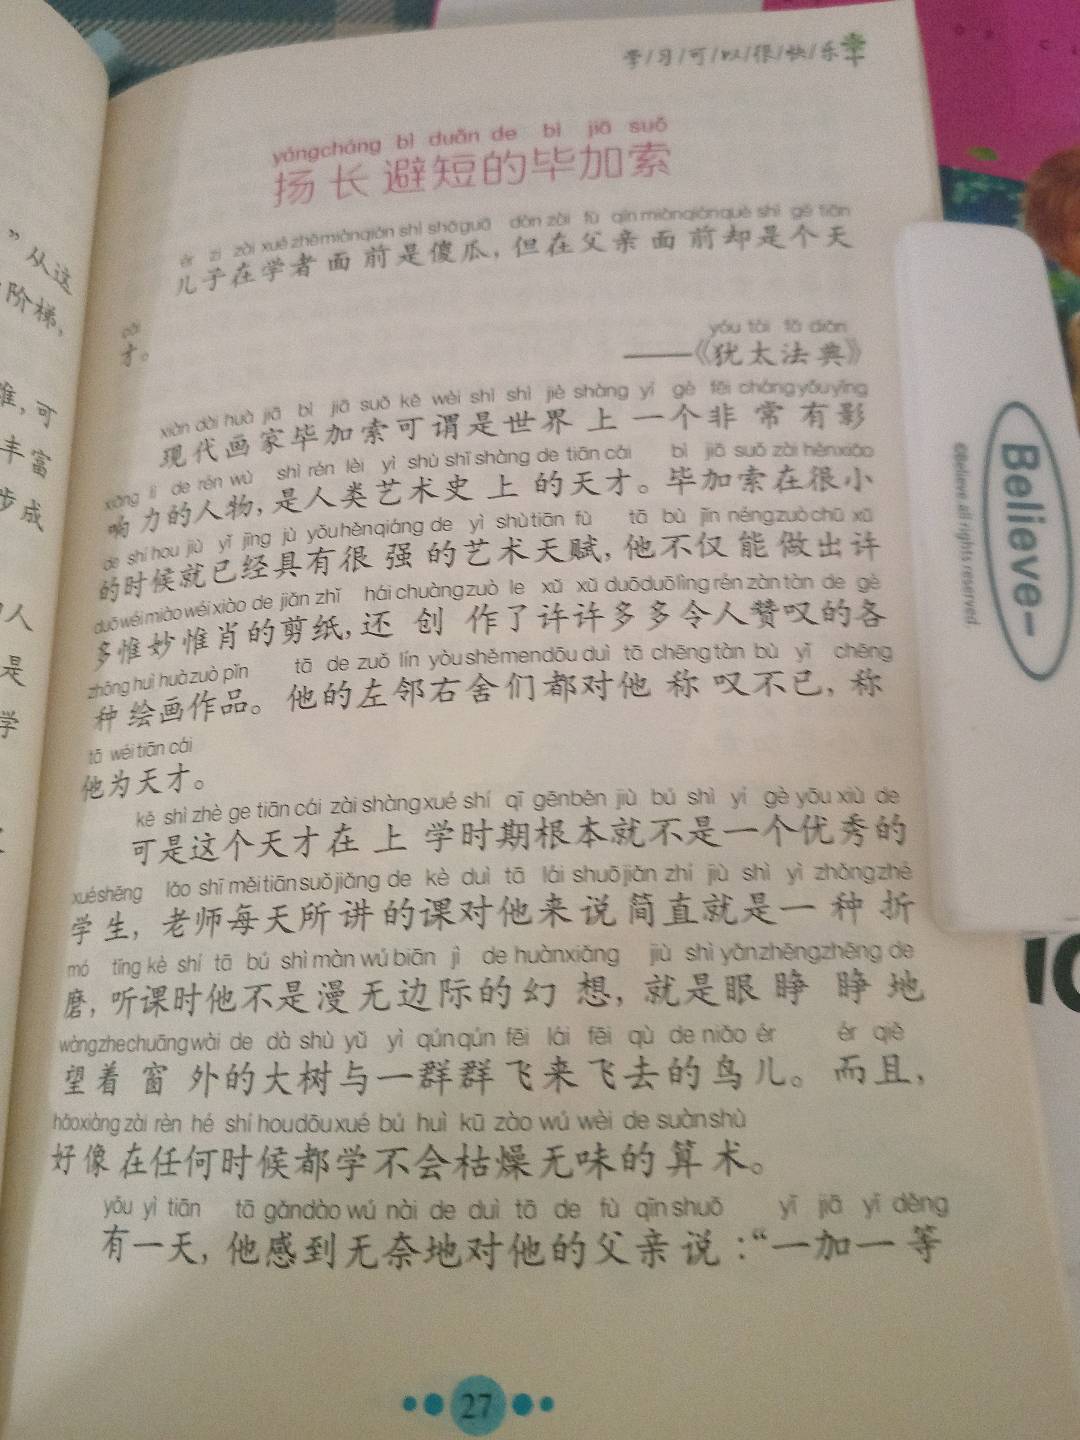 学/习/可/以/很/快/乐
yángcháng bì duǎn de bì jiā suǒ
扬长避短的毕加索
ér zi zài xué zhě miànqián shì shǎguā dàn zài fù qīn miànqián què shì gè tiān
儿子在学者面前是傻瓜,但在父亲面前却是个天
cái
才。
yóu tài fǎ diǎn
——《犹太法典》
xiàn dài huà jiā bì jiā suǒ kě wèi shì shì jiè shàng yí gè fēi chángyǒuyǐng
现代画家毕加索可谓是世界上一个非常有影
xiǎng lì de rén wù shì rén lèi yì shù shǐ shàng de tiān cái bì jiā suǒ zài hěnxiǎo
响力的人物,是人类艺术史上的天才。毕加索在很小
de shí hou jiù yǐ jīng jù yǒuhěnqiáng de yì shù tiān fù tā bù jǐn néngzuòchū xǔ
的时候就已经具有很强的艺术天赋,他不仅能做出许
duōwéimiàowéixiào de jiǎn zhǐ hái chuàngzuò le xǔ xǔ duōduōlìngrén zàn tàn de gè
多惟妙惟肖的剪纸,还创作了许许多多令人赞叹的各
zhǒng huì huàzuò pǐn tā de zuǒ lín yòushèmendōu duì tā chēngtàn bù yǐ chēng
种绘画作品。他的左邻右舍们都对他称叹不已,称
tā wéi tiān cái
他为天才。
kě shì zhè ge tiān cái zài shàngxué shí qī gēnběn jiù bú shì yí gè yōu xiù de
可是这个天才在上学时期根本就不是一个优秀的
xuéshēng lǎo shī měitiānsuǒjiǎng de kè duì tā lái shuōjiǎn zhí jiù shì yì zhǒngzhé
学生,老师每天所讲的课对他来说简直就是一种折
mó tīng kè shí tā bú shì màn wú biān jì de huànxiǎng jiù shì yǎnzhēngzhēng de
磨,听课时他不是漫无边际的幻想,就是眼睁睁地
wàngzhechuāngwài de dà shù yǔ yì qúnqún fēi lái fēi qù de niǎo ér ér qiě
望着窗外的大树与一群群飞来飞去的鸟儿。而且,
hǎoxiàng zài rèn hé shí houdōuxué bú huì kū zào wú wèi de suàn shù
好像在任何时候都学不会枯燥无味的算术。
yǒu yì tiān tā gǎndào wú nài de duì tā de fù qīn shuō yī jiā yī děng
有一天,他感到无奈地对他的父亲说:“一加一等
27
”从这
阶梯,
可
丰富
步成
人
是
学
Believe-
©Believe all rights reserved.